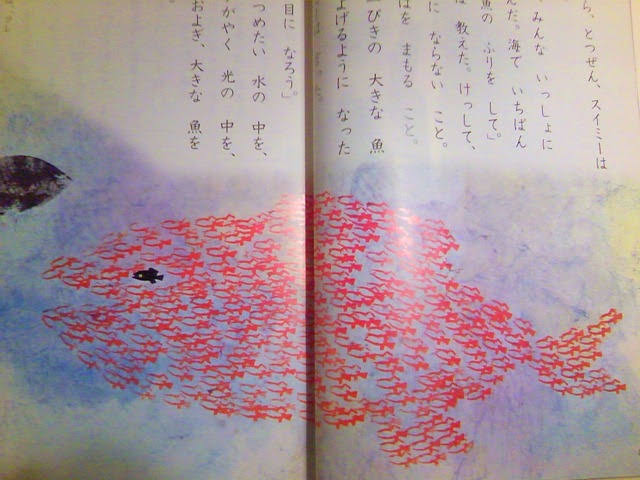 ら、とつぜん、スイミーは
、みんな いっしょに
んだ。海で いちばん
魚の ふりを して」
は 教えた。けっして、
に ならない こと。
ばを まもる こと。
ぴきの 大きな 魚
よげるように なった
目に なろう」
つめたい 水の 中を、
がやく 光の 中を、
およぎ、大きな 魚を